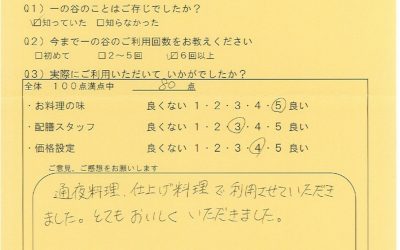 Q1）一の谷のことはご存じでしたか？
☑知っていた　□知らなかった
Q2）今まで一の谷のご利用回数をお教えください
□初めて　□2～5回　☑6回以上
Q3）実際にご利用いただいていかがでしたか？
全体　100点満点中　80　点
・お料理の味　良くない 1・2・3・4・⑤ 良い
・配膳スタッフ　良くない 1・2・③・4・5 良い
・価格設定　良くない 1・2・3・④・5 良い
ご意見、ご感想をお願いします
通夜料理、仕上げ料理で利用させていただき
ました。とてもおいしくいただきました。